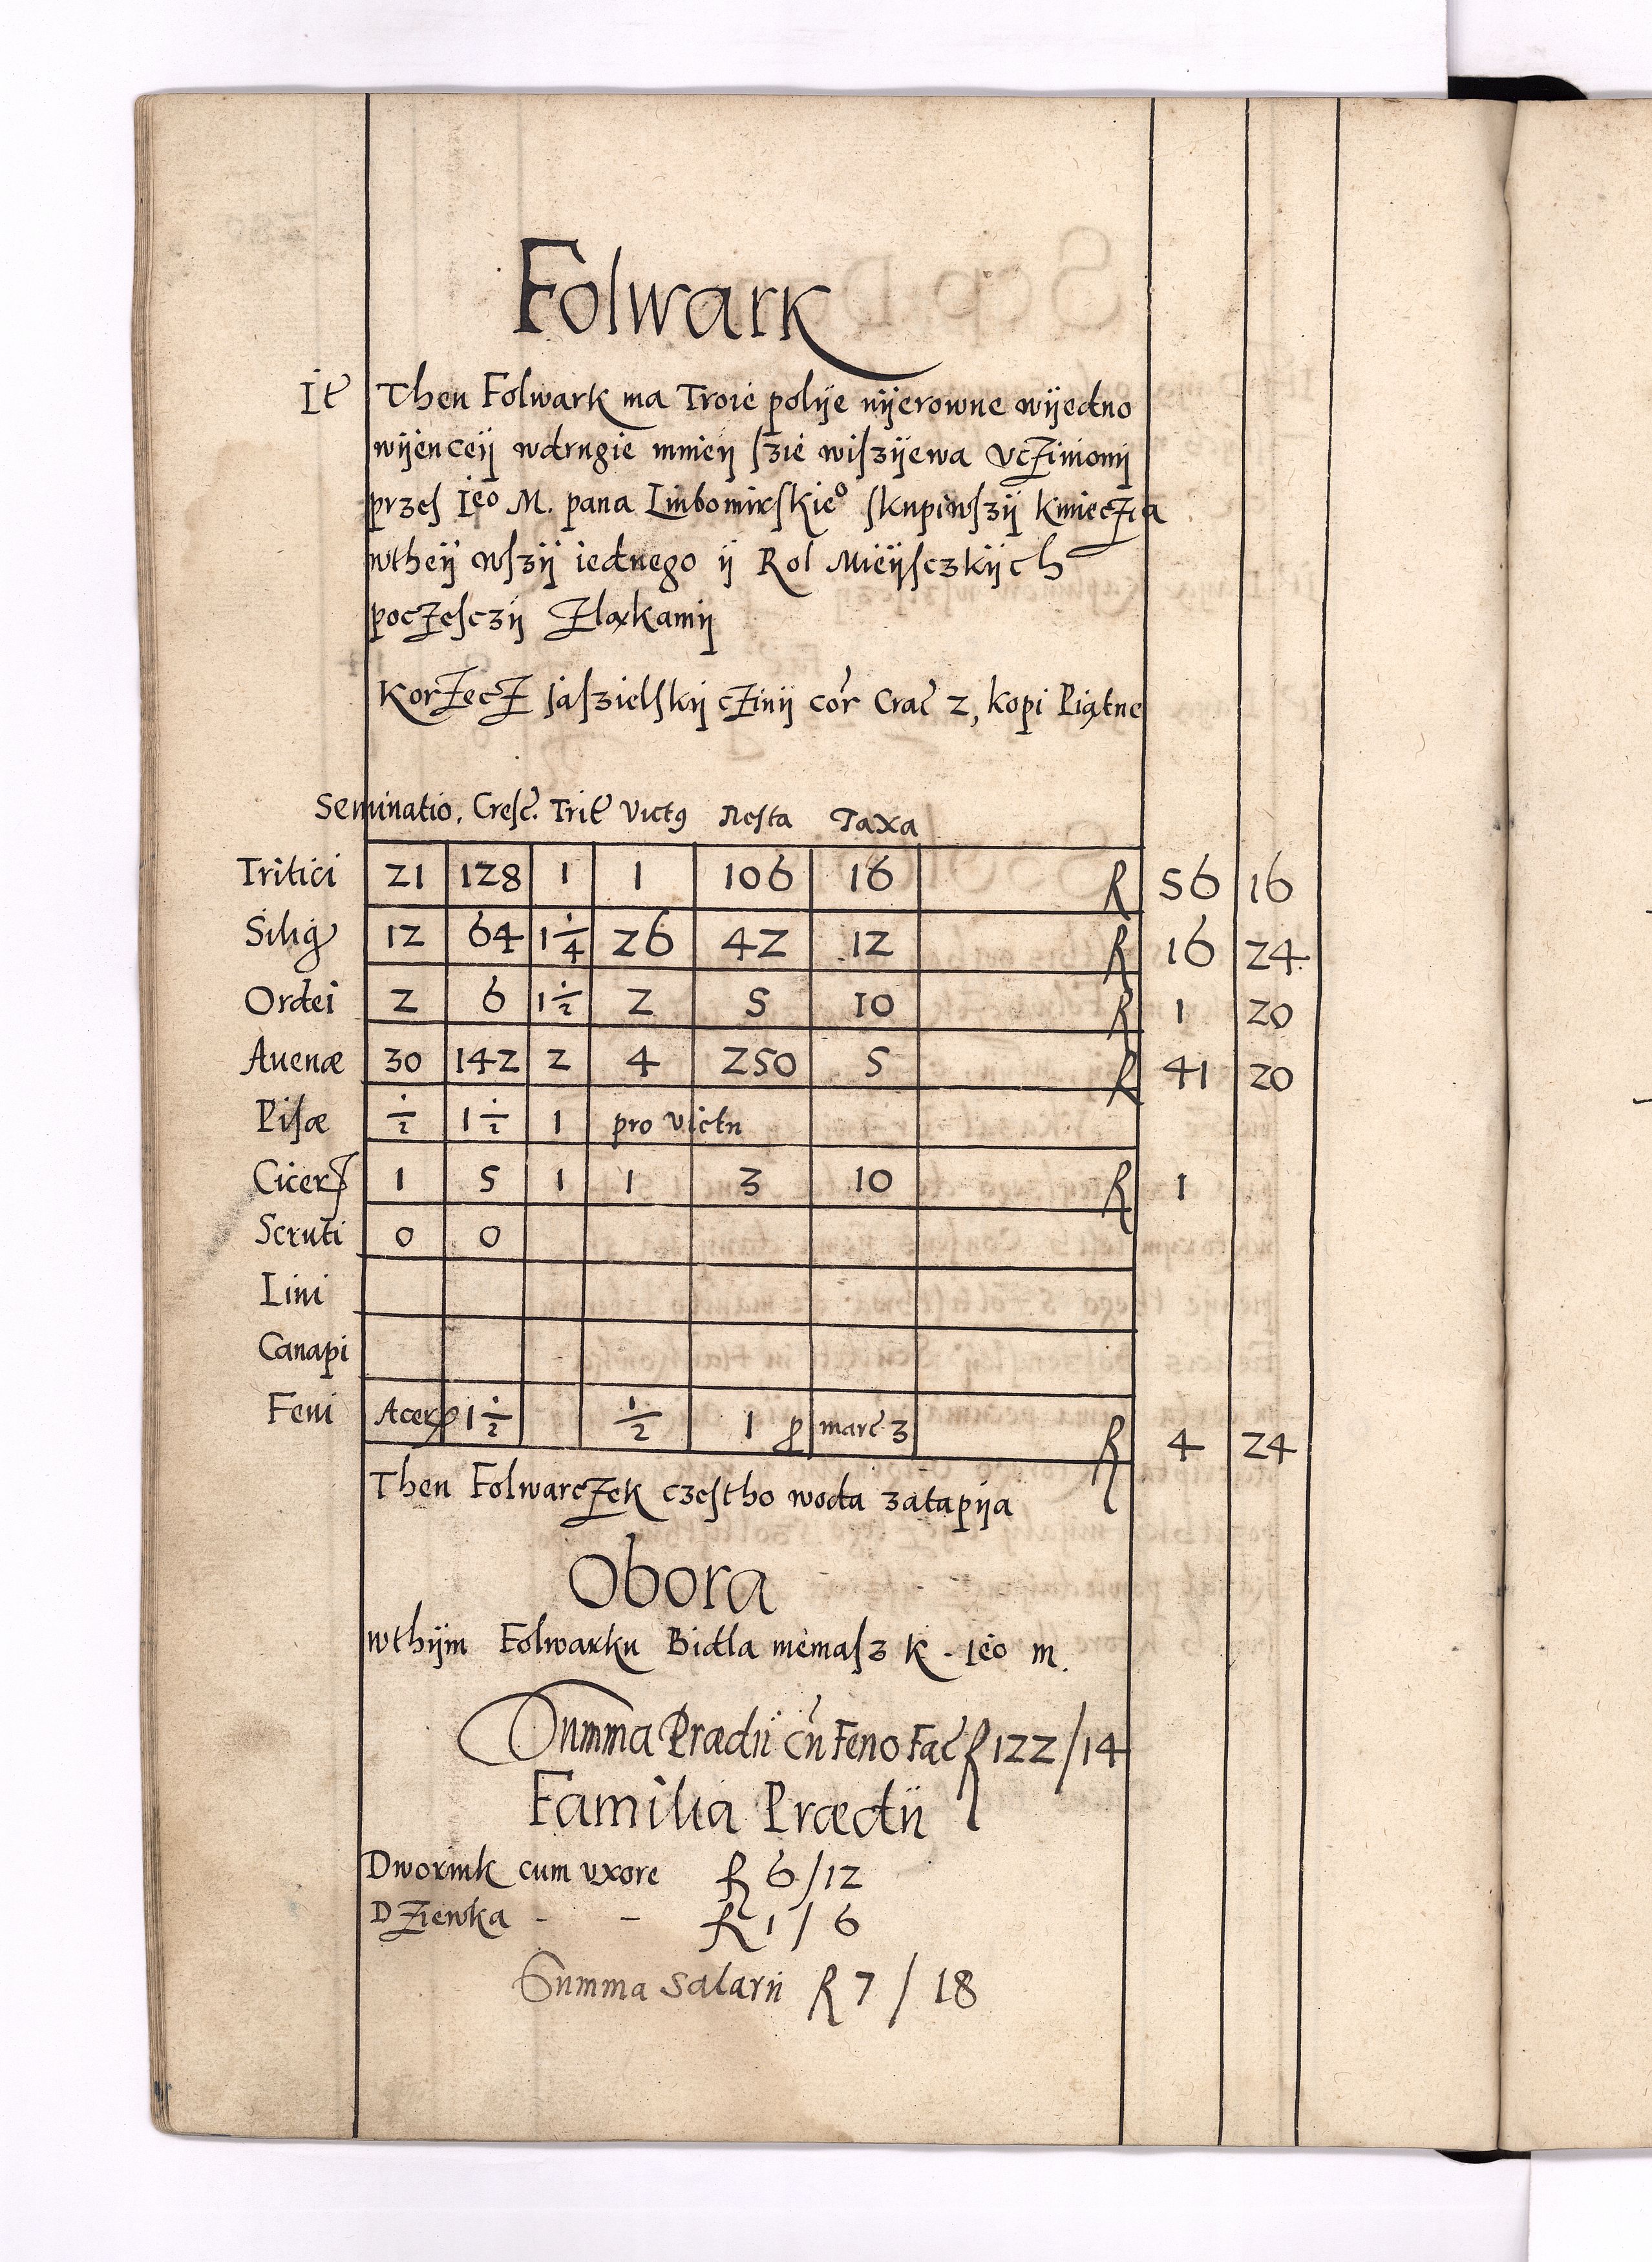 Folwark
It Then Folwark ma Troie polÿe nÿerowne wÿedno
wÿenceÿ wdrugie mnieÿ ſzie wiſzÿewa Vcżinionÿ
przeſ Ieo M. pana Lubomirſkieo ſkupiwſzÿ kmiecżia
wtheÿ wſzÿ iednego ÿ Rol Mieÿſczkÿch
pocżeſczÿ Żląkamÿ
Korżecż ſaſzielſkÿ cżinÿ cor Crac 2, kopi Piątne
Seminatio, Creſc. Trit Vict9 Reſta Taxa
Tritici 21 128 1 1 106 16 R 56 16
Silig 12 64 1 1/4 26 42 12 R 16 24
Ordei 2 6 1 1/2 2 5 10 R 1 20
Auenæ 30 142 2 4 250 5 R 41 20
Piſæ 1/2 1 1/2 1 pro victu
Cicer 1 5 1 1 3 10 R 1
Scruti 0 0
Lini
Canapi
Feni Acer 1 1/2 1/2 1 marc 3 R 4 24
Then Folwarcżek czeſtho woda zatapÿa
Obora
wthÿm Folwarku Bidla memaſz K. Ieo m.
Summa Prædii cu Feno Fac R 122/14
Familia Prædii
Dwornik cum vxore R 6/12
Dżiewka - - R 1/6
Summa Salarii R 7/18